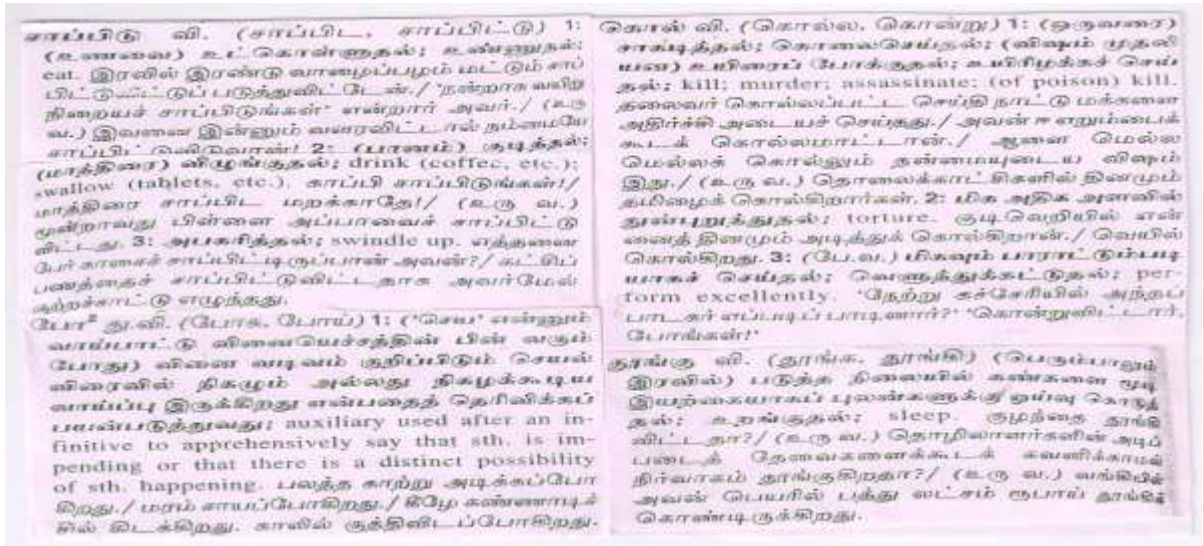 சாப்பிடு வி. (சாப்பிட, சாப்பிட்டு) 1:
(உணவை) உட்கொள்ளுதல்; உண்ணுதல்;
eat. இரவில் இரண்டு வாழைப்பழம் மட்டும் சாப்
பிட்டுவிட்டுப் படுத்துவிட்டேன்./ 'நன்றாக வயிறு
நிறையச் சாப்பிடுங்கள்' என்றார் அவர்./ (உரு
வ.) இவனை இன்னும் வளரவிட்டால் நம்மையே
சாப்பிட்டுவிடுவான்! 2: (பானம்) குடித்தல்;
(மாத்திரை) விழுங்குதல்; drink (coffee, etc.);
swallow (tablets, etc.). காப்பி சாப்பிடுங்கள்!/
மாத்திரை சாப்பிட மறக்காதே!/ (உரு வ.)
மூன்றாவது பிள்ளை அப்பாவைச் சாப்பிட்டு
விட்டது. 3: அபகரித்தல்; swindle up. எத்தனை
பேர் காசைச் சாப்பிட்டிருப்பான் அவன்?/ கட்சிப்
பணத்தைச் சாப்பிட்டுவிட்டதாக அவர்மேல்
குற்றச்சாட்டு எழுந்தது.
போ² து.வி. (போக, போய்) 1: ('செய' என்னும்
வாய்பாட்டு வினையெச்சத்தின் பின் வரும்
போது) வினை வடிவம் குறிப்பிடும் செயல்
விரைவில் நிகழும் அல்லது நிகழக்கூடிய
வாய்ப்பு இருக்கிறது என்பதைத் தெரிவிக்கப்
பயன்படுத்துவது; auxiliary used after an in-
finitive to apprehensively say that sth. is im-
pending or that there is a distinct possibility
of sth. happening. பலத்த காற்று அடிக்கப்போ
கிறது./ மரம் சாயப்போகிறது./ கீழே கண்ணாடிச்
சில் கிடக்கிறது. காலில் குத்திவிடப்போகிறது.
கொல் வி. (கொல்ல, கொன்று) 1: (ஒருவரை)
சாகடித்தல்; கொலைசெய்தல்; (விஷம் முதலி
யன) உயிரைப் போக்குதல்; உயிரிழக்கச் செய்
தல்; kill; murder; assassinate; (of poison) kill.
தலைவர் கொல்லப்பட்ட செய்தி நாட்டு மக்களை
அதிர்ச்சி அடையச் செய்தது./ அவன் ஈ எறும்பைக்
கூடக் கொல்லமாட்டான்./ ஆளை மெல்ல
மெல்லக் கொல்லும் தன்மையுடைய விஷம்
இது./ (உரு வ.) தொலைக்காட்சிகளில் தினமும்
தமிழைக் கொல்கிறார்கள். 2: மிக அதிக அளவில்
துன்புறுத்துதல்; torture. குடிவெறியில் என்
னைத் தினமும் அடித்துக் கொல்கிறான்./ வெயில்
கொல்கிறது. 3: (பே.வ.) மிகவும் பாராட்டும்படி
யாகச் செய்தல்; வெளுத்துக்கட்டுதல்; per-
form excellently. 'நேற்று கச்சேரியில் அந்தப்
பாடகர் எப்படிப் பாடினார்?' 'கொன்றுவிட்டார்,
போங்கள்!'
தூங்கு வி. (தூங்க, தூங்கி) (பெரும்பாலும்
இரவில்) படுத்த நிலையில் கண்களை மூடி
இயற்கையாகப் புலன்களுக்கு ஓய்வு கொடுத்
தல்; உறங்குதல்; sleep. குழந்தை தூங்கி
விட்டதா?/ (உரு வ.) தொழிலாளர்களின் அடிப்
படைத் தேவைகளைக்கூடக் கவனிக்காமல்
நிர்வாகம் தூங்குகிறதா?/ (உரு வ.) வங்கியில்
அவன் பெயரில் பத்து லட்சம் ரூபாய் தூங்கிக்
கொண்டிருக்கிறது.